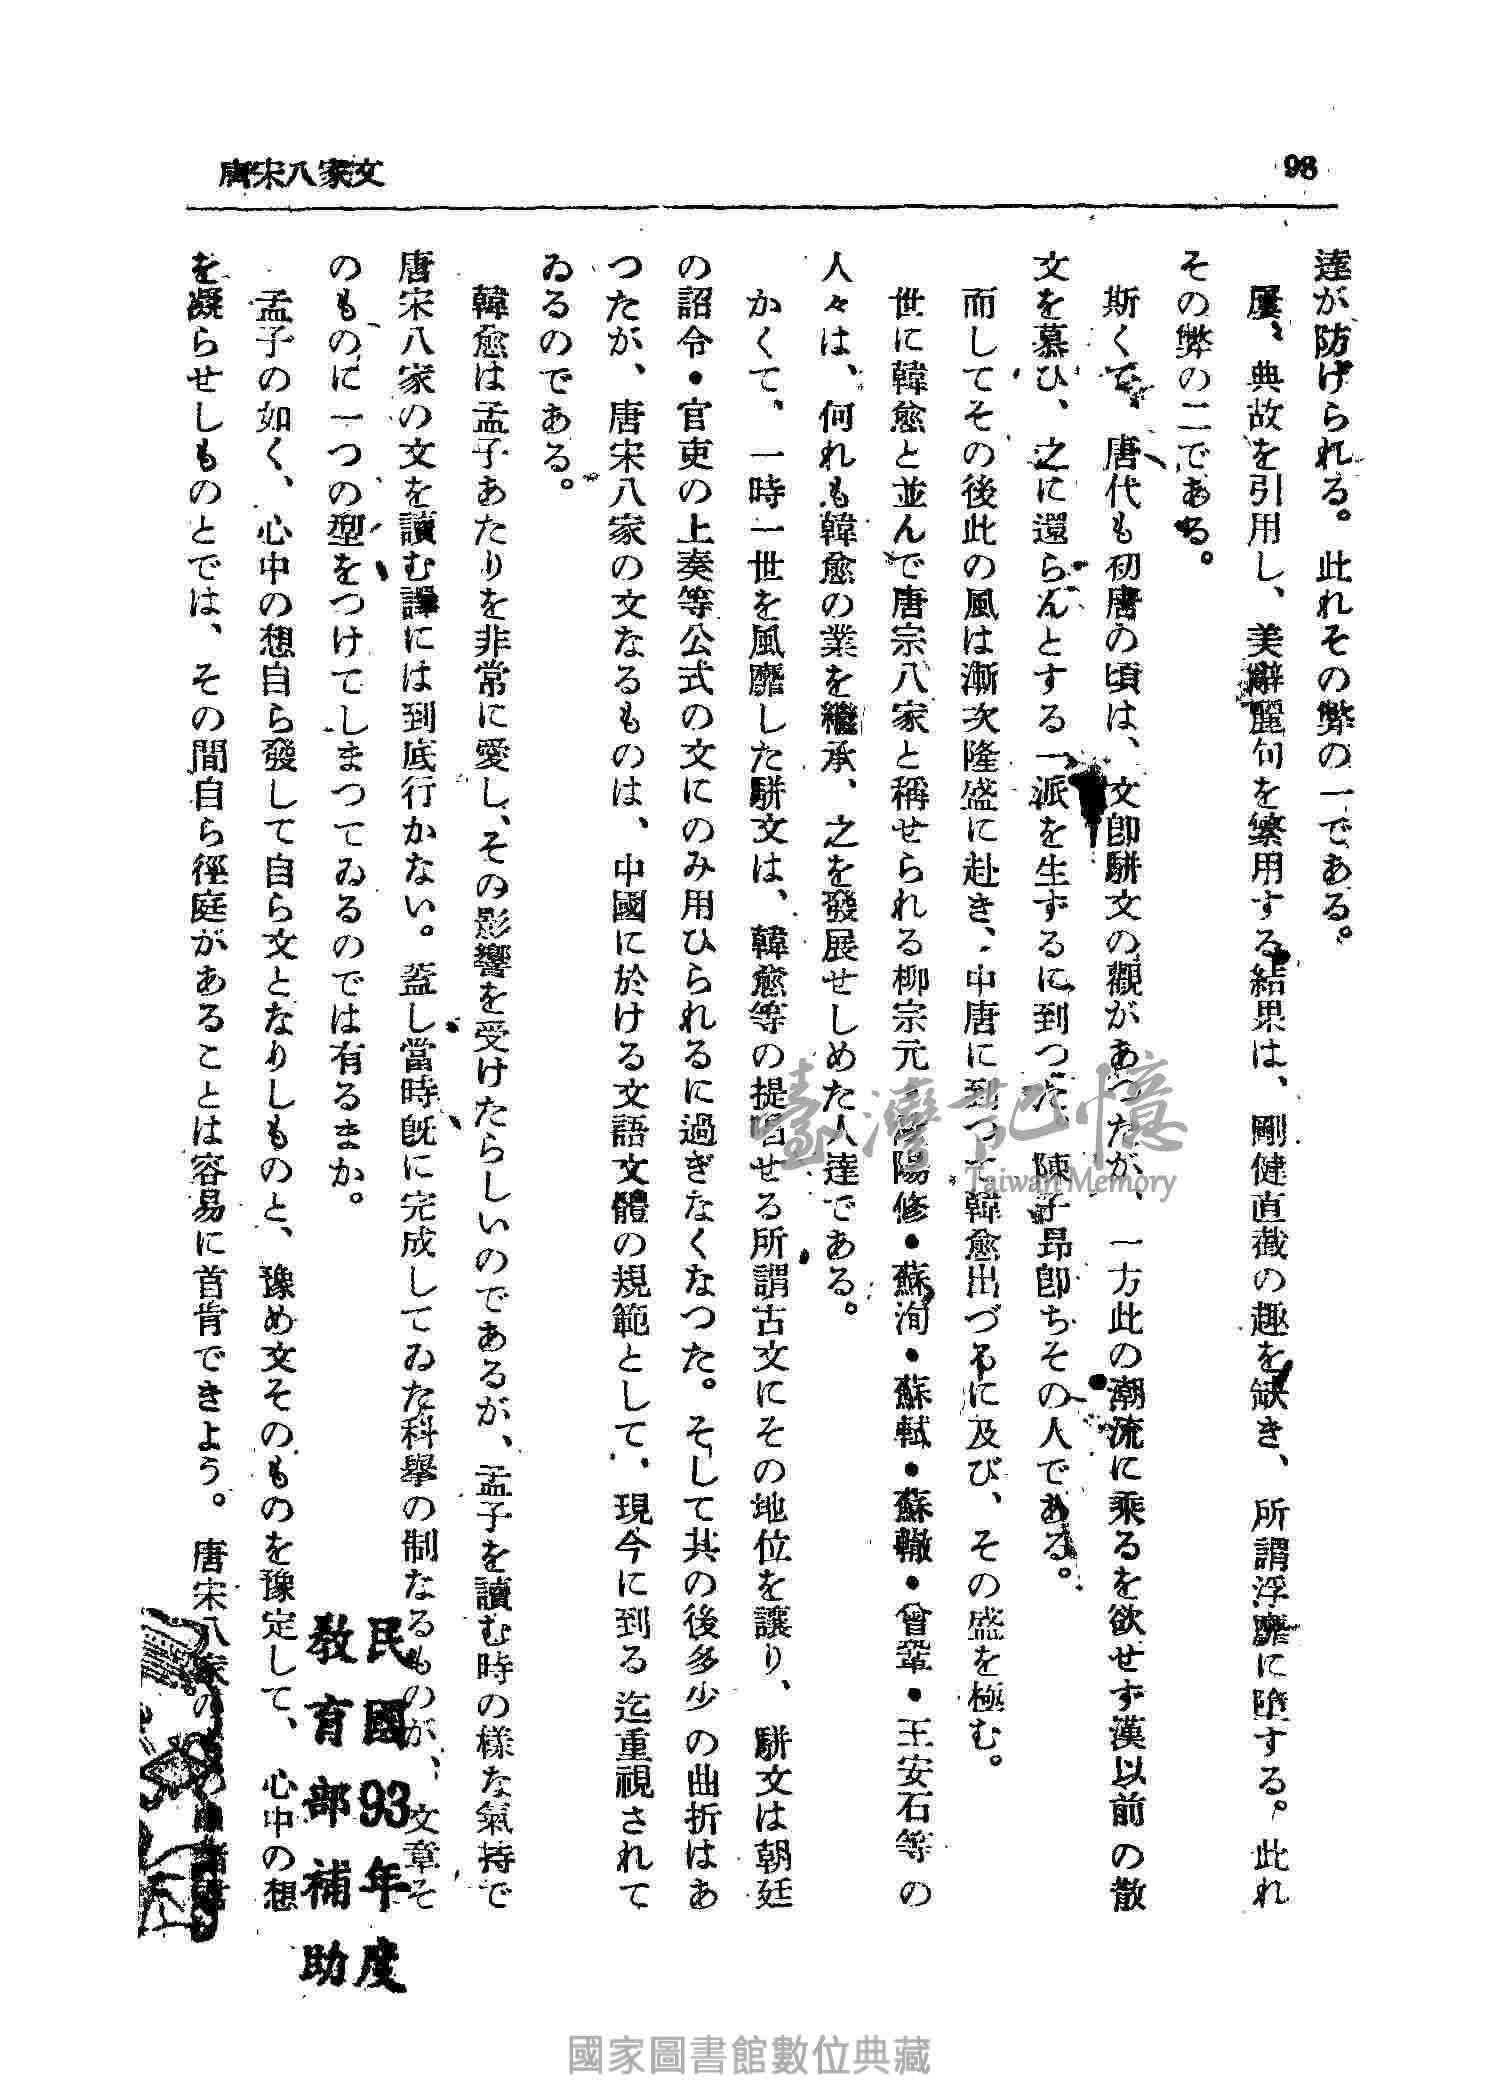 唐宋八家文
98
達が防げられる。此れその弊の一である。
屢、典故を引用し、美辭麗句を繁用する結果は、剛健直截の趣を缺き、所謂浮靡に墮する。此れ
その弊の二である。
斯くて、唐代も初唐の頃は、文卽駢文の觀があつたが、一方此の潮流に乘るを欲せず漢以前の散
文を慕ひ、之に還らんとする一派を生ずるに到つた、陳子昂卽ちその人である。
而してその後此の風は漸次隆盛に赴き、中唐に到つて韓愈出づるに及び、その盛を極む。
世に韓愈と並んで唐宗八家と稱せられる柳宗元・歐陽修・蘇洵・蘇軾・蘇轍・曾鞏・王安石等の
人々は、何れも韓愈の業を繼承、之を發展せしめた人達である。
かくて、一時一世を風靡した駢文は、韓愈等の提唱せる所謂古文にその地位を讓り、駢文は朝廷
の詔令・官吏の上奏等公式の文にのみ用ひられるに過ぎなくなつた。そして其の後多少の曲折はあ
つたが、唐宋八家の文なるものは、中國に於ける文語文體の規範として、現今に到る迄重視されて
ゐるのである。
韓愈は孟子あたりを非常に愛し、その影響を受けたらしいのであるが、孟子を讀む時の樣な氣持で
唐宋八家の文を讀む譯には到底行かない。蓋し當時旣に完成してゐた科擧の制なるものが、文章そ
のものに一つの型をつけてしまつてゐるのでは有るまか。
孟子の如く、心中の想自ら發して自ら文となりしものと、豫め文そのものを豫定して、心中の想
を凝らせしものとでは、その間自ら徑庭があることは容易に首肯できよう。唐宋八家の
民國93年度
教育部補助
臺灣記憶
Taiwan Memory
國家圖書館數位典藏